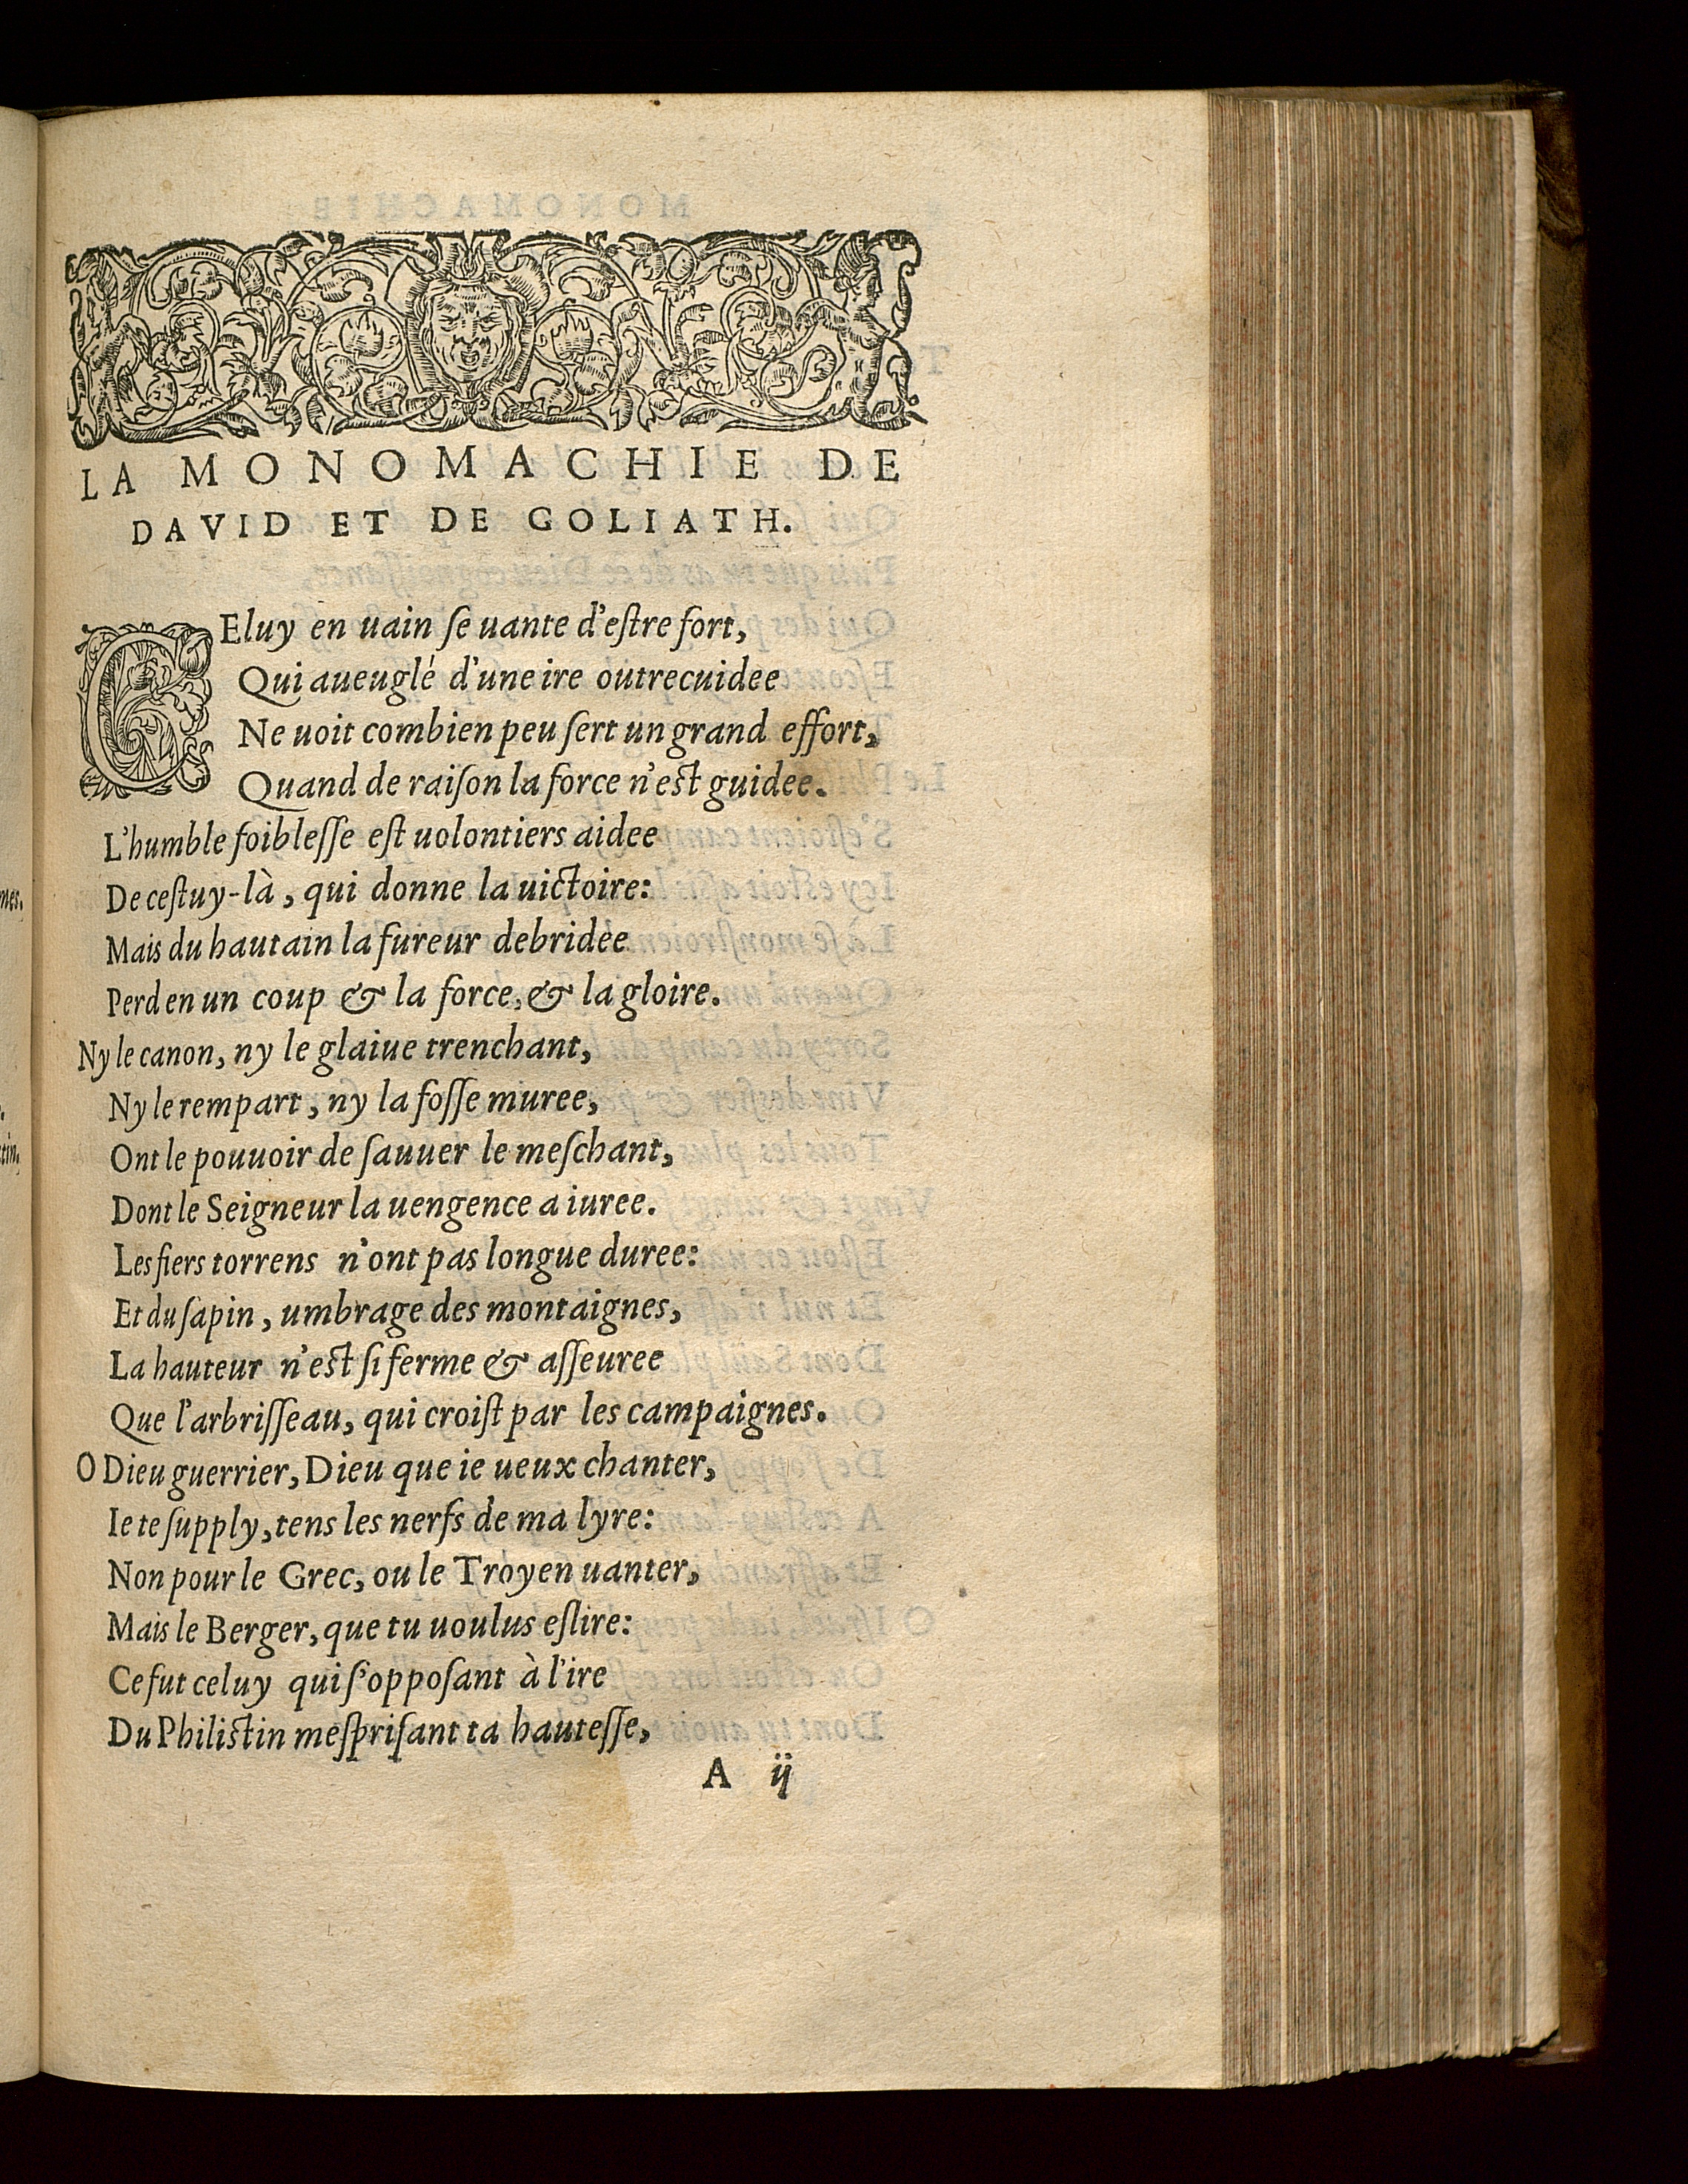 LA MONOMACHIE DE
DAVID ET DE GOLIATH.
CEluy en uain ſe uante d'eſtre fort,
Qui aueuglé d'une ire outrecuidee
Ne uoit combien peu ſert un grand effort,
Quand de raiſon la force n'eſt guidee.
L'humble foibleſſe eſt uolontiers aidee
De ceſtuy-là, qui donne la uictoire:
Mais du hautain la fureur debridee
Perd en un coup & la force, & la gloire.
Ny le canon, ny le glaiue trenchant,
Ny le rempart, ny la foſſe muree,
Ont le pouuoir de ſauuer le meſchant,
Dont le Seigneur la uengence a iuree.
Les fiers torrens n'ont pas longue duree:
Et du ſapin, umbrage des montaignes,
La hauteur n'eſt ſi ferme & aſſeuree
Que l'arbriſſeau, qui croiſt par les campaignes.
O Dieu guerrier, Dieu que ie ueux chanter,
Ie te ſupply, tens les nerfs de ma lyre:
Non pour le Grec, ou le Troyen uanter,
Mais le Berger, que tu uoulus eſlire:
Ce fut celuy qui ſ'oppoſant à l'ire
Du Philiſtin meſpriſant ta hauteſſe,
A ij